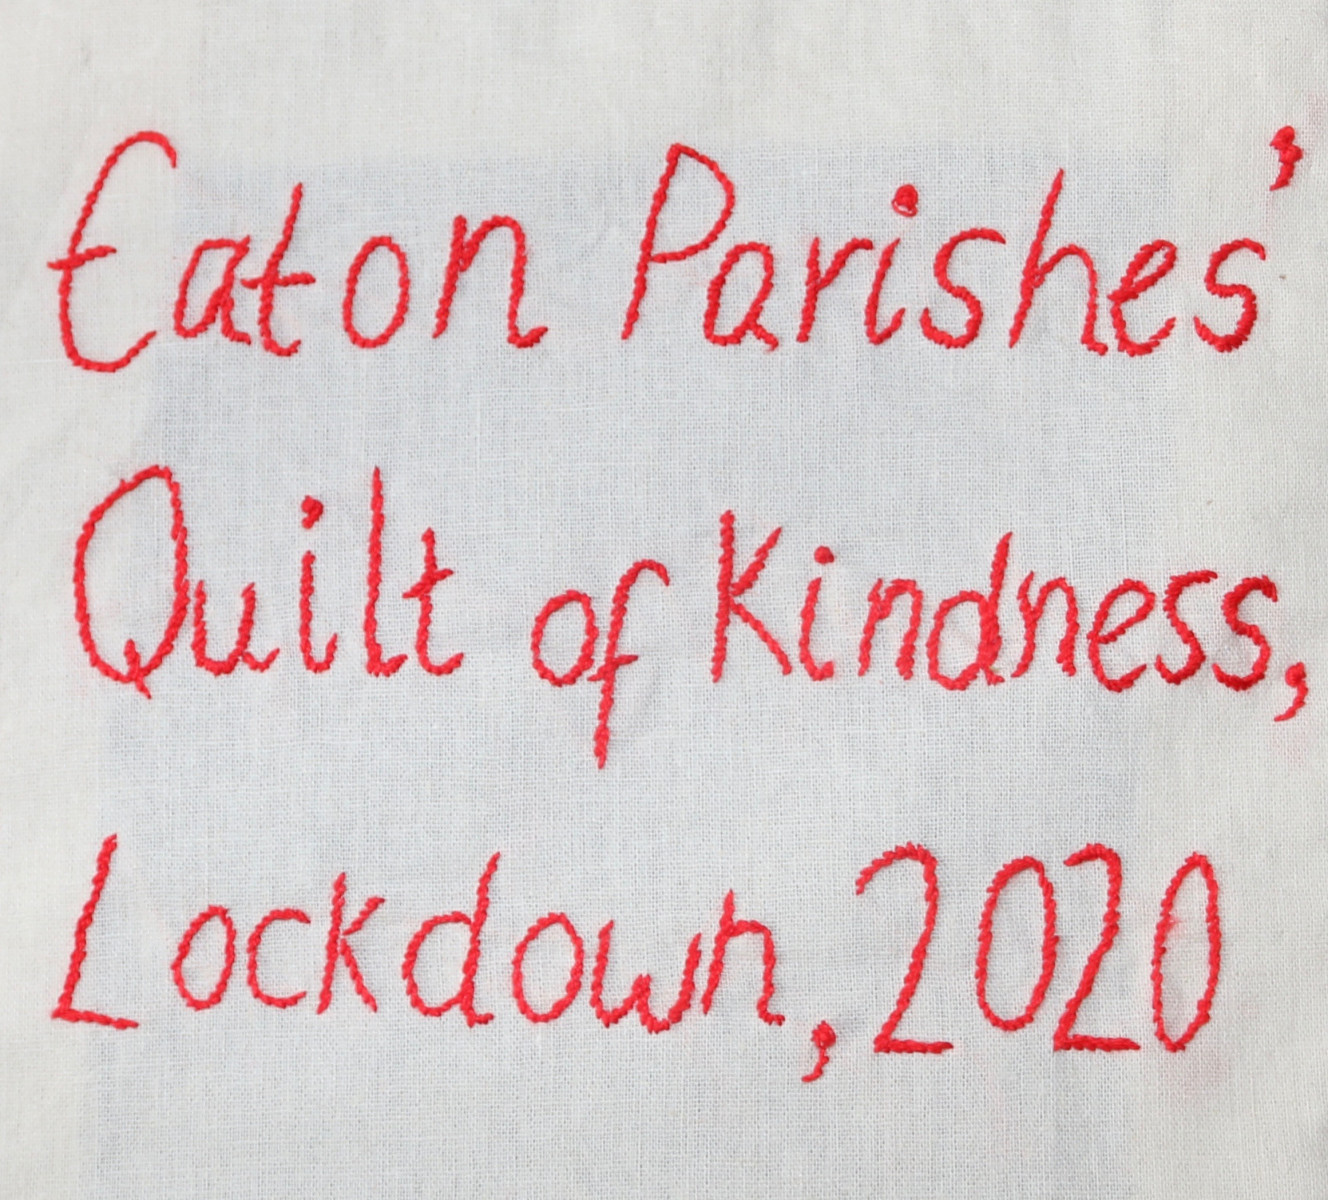 Eaton Parishes'
Quilt of Kindness,
Lockdown, 2020